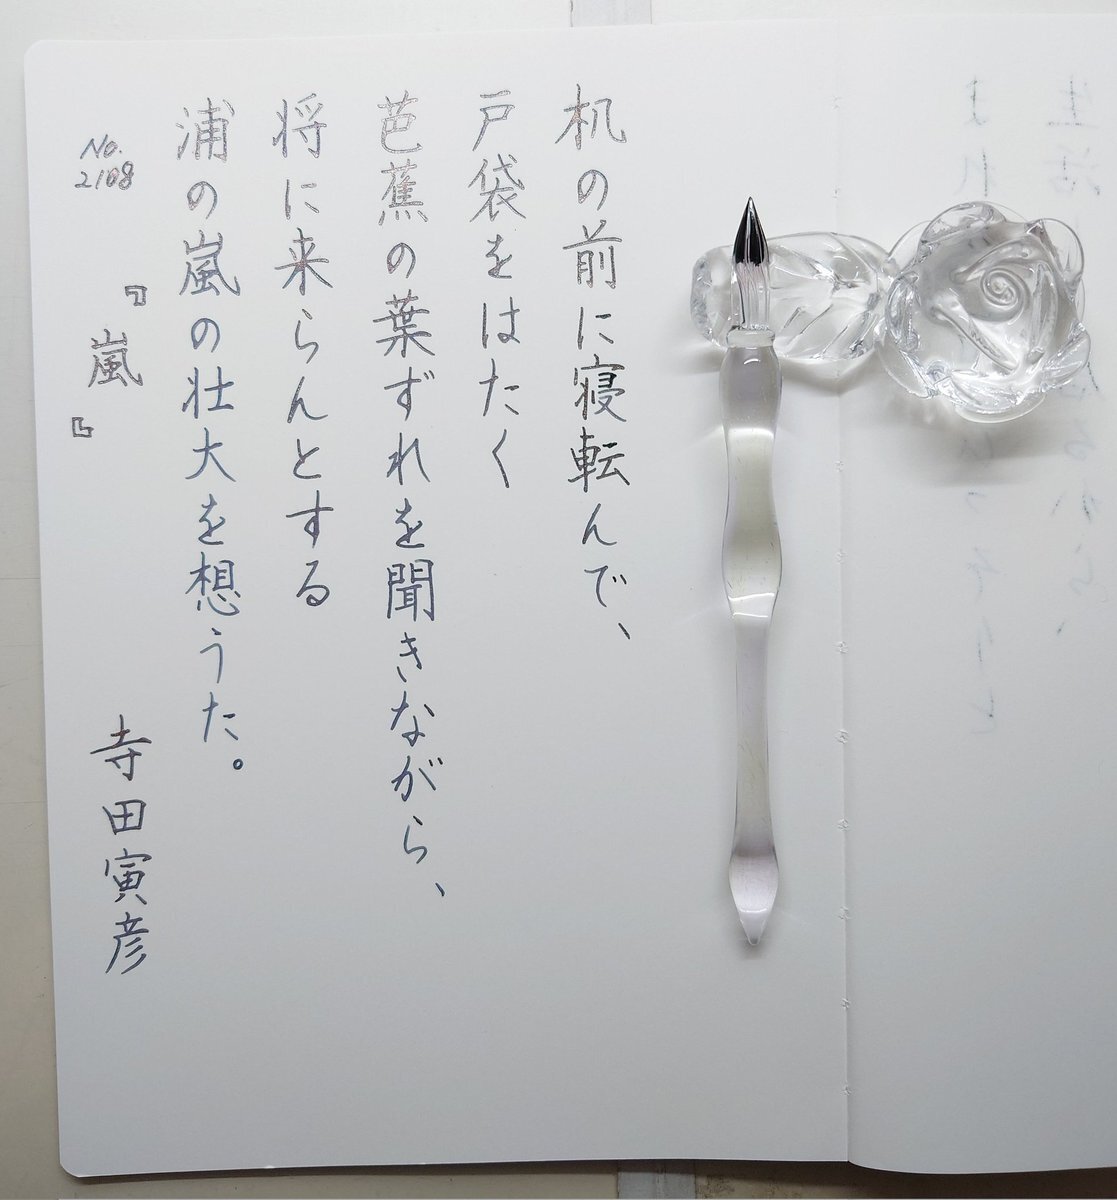 机の前に寝転んで、
戸袋をはたく
芭蕉の葉ずれを聞きながら、
将に来らんとする
浦の嵐の壮大を想うた。
『嵐』
寺田寅彦
No.
2108